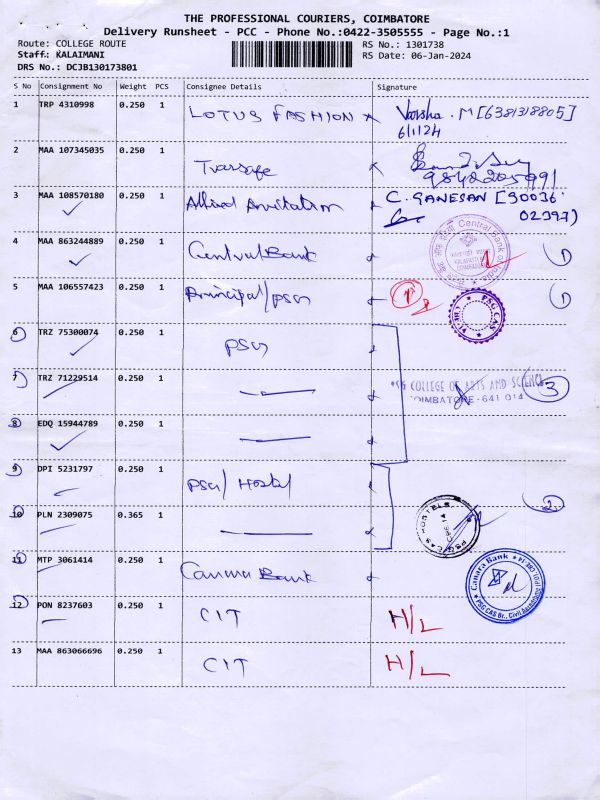 THE PROFESSIONAL COURIERS, COIMBATORE
Delivery Runsheet - PCC - Phone No.:0422-3505555 - Page No.:1
Route: COLLEGE ROUTE
RS No.: 1301738
Staff: KALAIMANI
RS Date: 06-Jan-2024
DRS No.: DCJB130173801
S No Consignment No Weight PCS Consignee Details Signature
1 TRP 4310998 0.250 1 LOTUS FASHION Varsha.M [6381318805]
6/1/24
2 MAA 107345035 0.250 1 Transafe
3 MAA 108570180 0.250 1 Allied C. GANESAN [90036
02397)
4 MAA 863244889 0.250 1 Central Bank Central Bank of India 1
5 MAA 106557423 0.250 1 Principal/PSG 1 PSG CAS 1
6 TRZ 75300074 0.250 1 PSG
7 TRZ 71229514 0.250 1 PSG COLLEGE OF ARTS AND SCIENCE 3
COIMBATORE - 641 014
8 EDQ 15944789 0.250 1
9 DPI 5231797 0.250 1 PSG/Hostel
10 PLN 2309075 0.365 1 PSG CAS HOSTELS CBE-14 2
11 MTP 3061414 0.250 1 Canara Bank Canara Bank
PSG CAS Br., Civil
12 PON 8237603 0.250 1 CIT H/L
13 MAA 863066696 0.250 1 CIT H/L